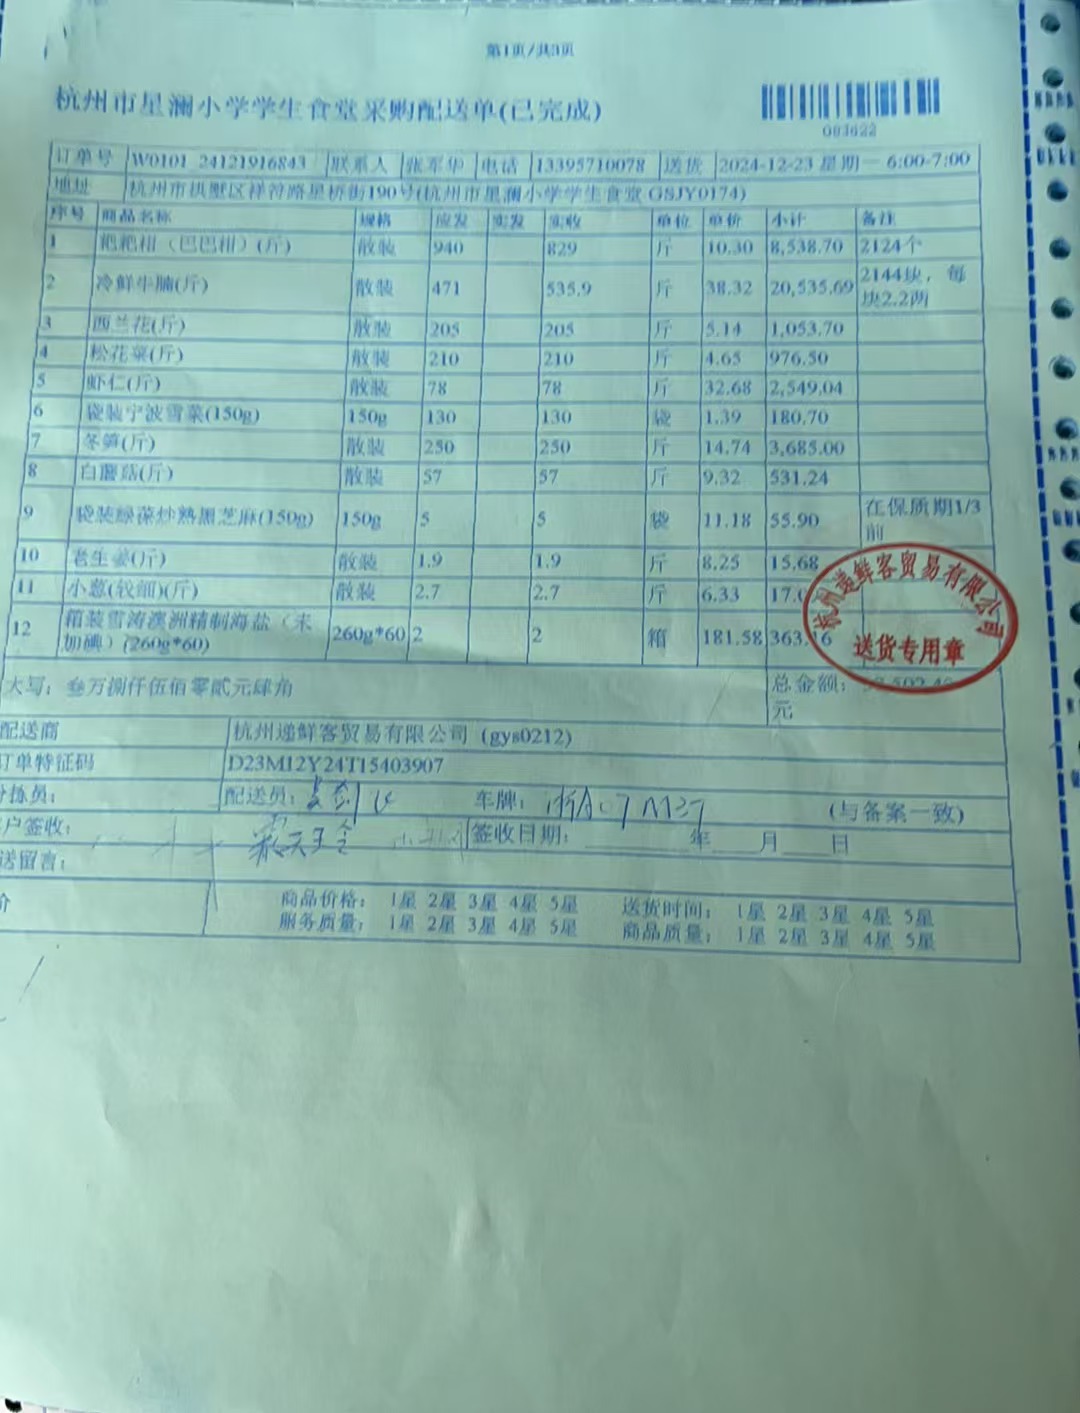 第1页/共3页
杭州市星澜小学学生食堂采购配送单(已完成)
083622
订单号 W0101_24121916843 联系人 张军华 电话 13395710078 送货 2024-12-23 星期一 6:00-7:00
地址 杭州市拱墅区祥符路星桥街190号(杭州市星澜小学学生食堂 GSJY0174)
序号 商品名称 规格 应发 实发 实收 单位 单价 小计 备注
1 粑粑柑（巴巴柑）(斤) 散装 940 829 斤 10.30 8,538.70 2124个
2 冷鲜牛腩(斤) 散装 471 535.9 斤 38.32 20,535.69 2144块，每块2.2两
3 西兰花(斤) 散装 205 205 斤 5.14 1,053.70
4 松花菜(斤) 散装 210 210 斤 4.65 976.50
5 虾仁(斤) 散装 78 78 斤 32.68 2,549.04
6 袋装宁波雪菜(150g) 150g 130 130 袋 1.39 180.70
7 冬笋(斤) 散装 250 250 斤 14.74 3,685.00
8 白蘑菇(斤) 散装 57 57 斤 9.32 531.24
9 袋装绿葆炒熟黑芝麻(150g) 150g 5 5 袋 11.18 55.90 在保质期1/3前
10 老生姜(斤) 散装 1.9 1.9 斤 8.25 15.68
11 小葱(较细)(斤) 散装 2.7 2.7 斤 6.33 17.0
12 箱装雪涛澳洲精制海盐（未加碘）(260g*60) 260g*60 2 2 箱 181.58 363.16
杭州递鲜客贸易有限公司
送货专用章
大写：叁万捌仟伍佰零贰元肆角 总金额： 元
配送商 杭州递鲜客贸易有限公司 (gys0212)
订单特征码 D23M12Y24T15403907
拣员： 配送员： 车牌：浙A07M37 (与备案一致)
户签收： 签收日期： 年 月 日
送留言：
价 商品价格： 1星 2星 3星 4星 5星 送货时间： 1星 2星 3星 4星 5星
服务质量： 1星 2星 3星 4星 5星 商品质量： 1星 2星 3星 4星 5星